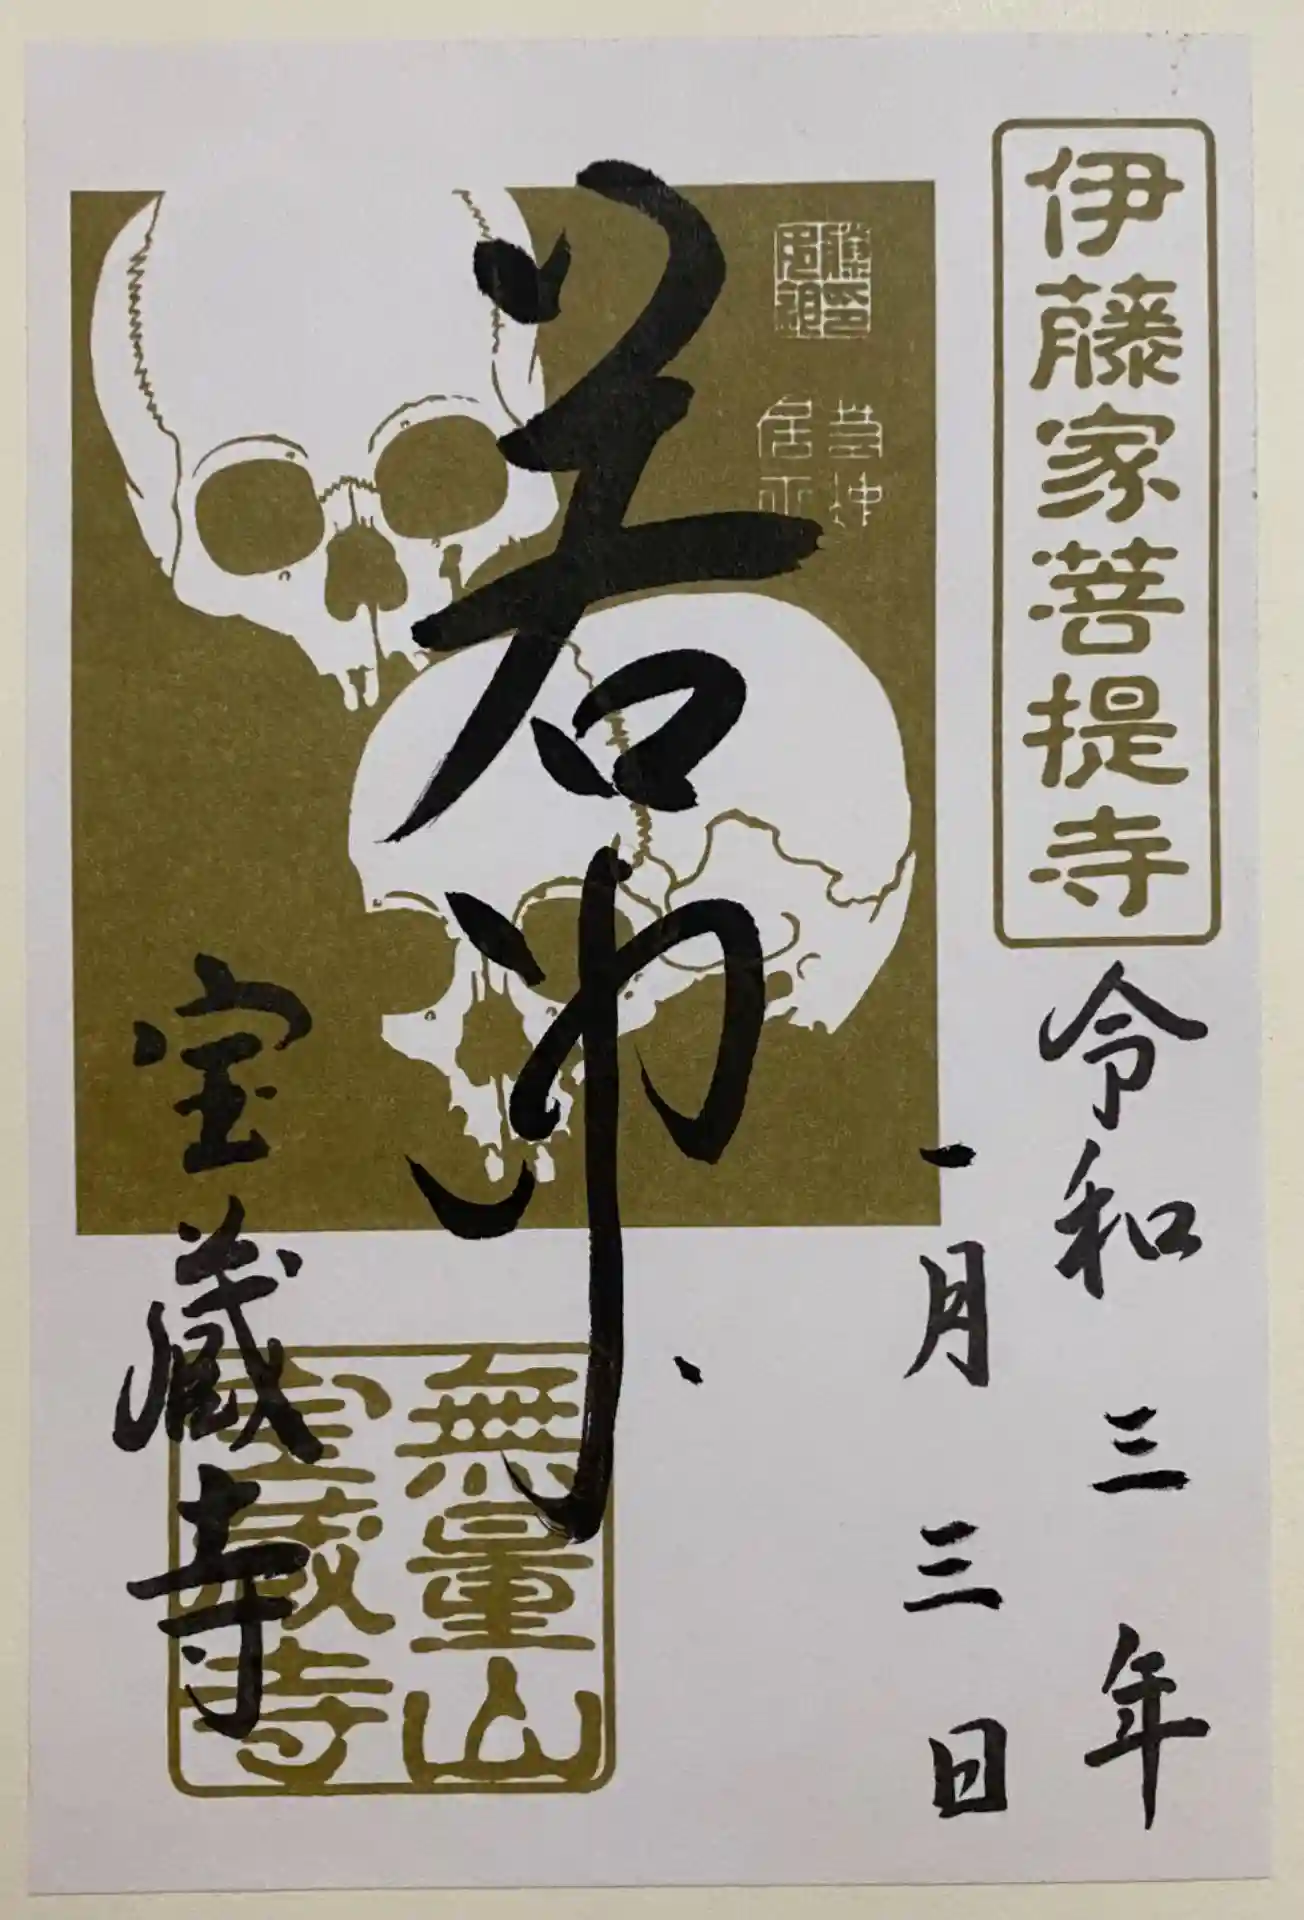 伊藤家菩提寺
令和三年
一月三日
若冲
若冲
居士
無量山
宝蔵寺
宝蔵寺